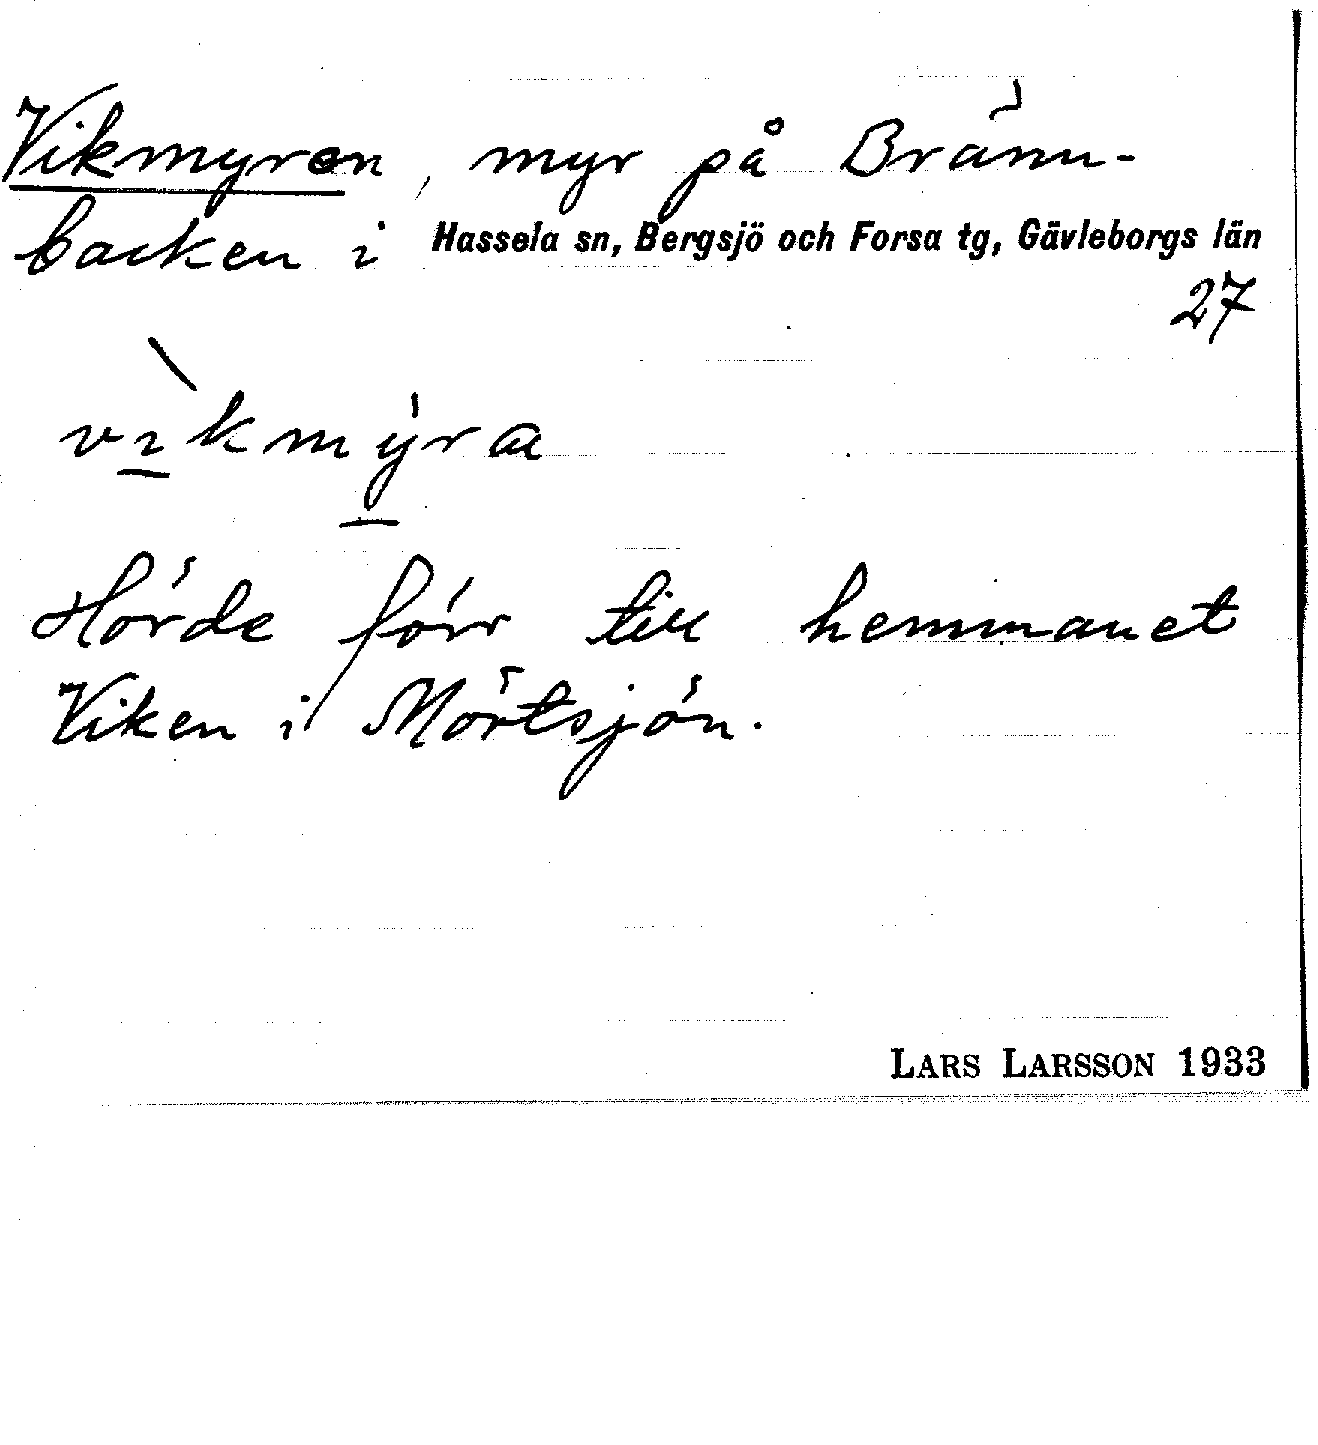 Vikmyren, myr på Bränn-
backen i Hassela sn, Bergsjö och Forsa tg, Gävleborgs län
27
vı̀kmy̍ra
Hörde förr till hemmanet
Viken i Mörtsjön.
LARS LARSSON 1933